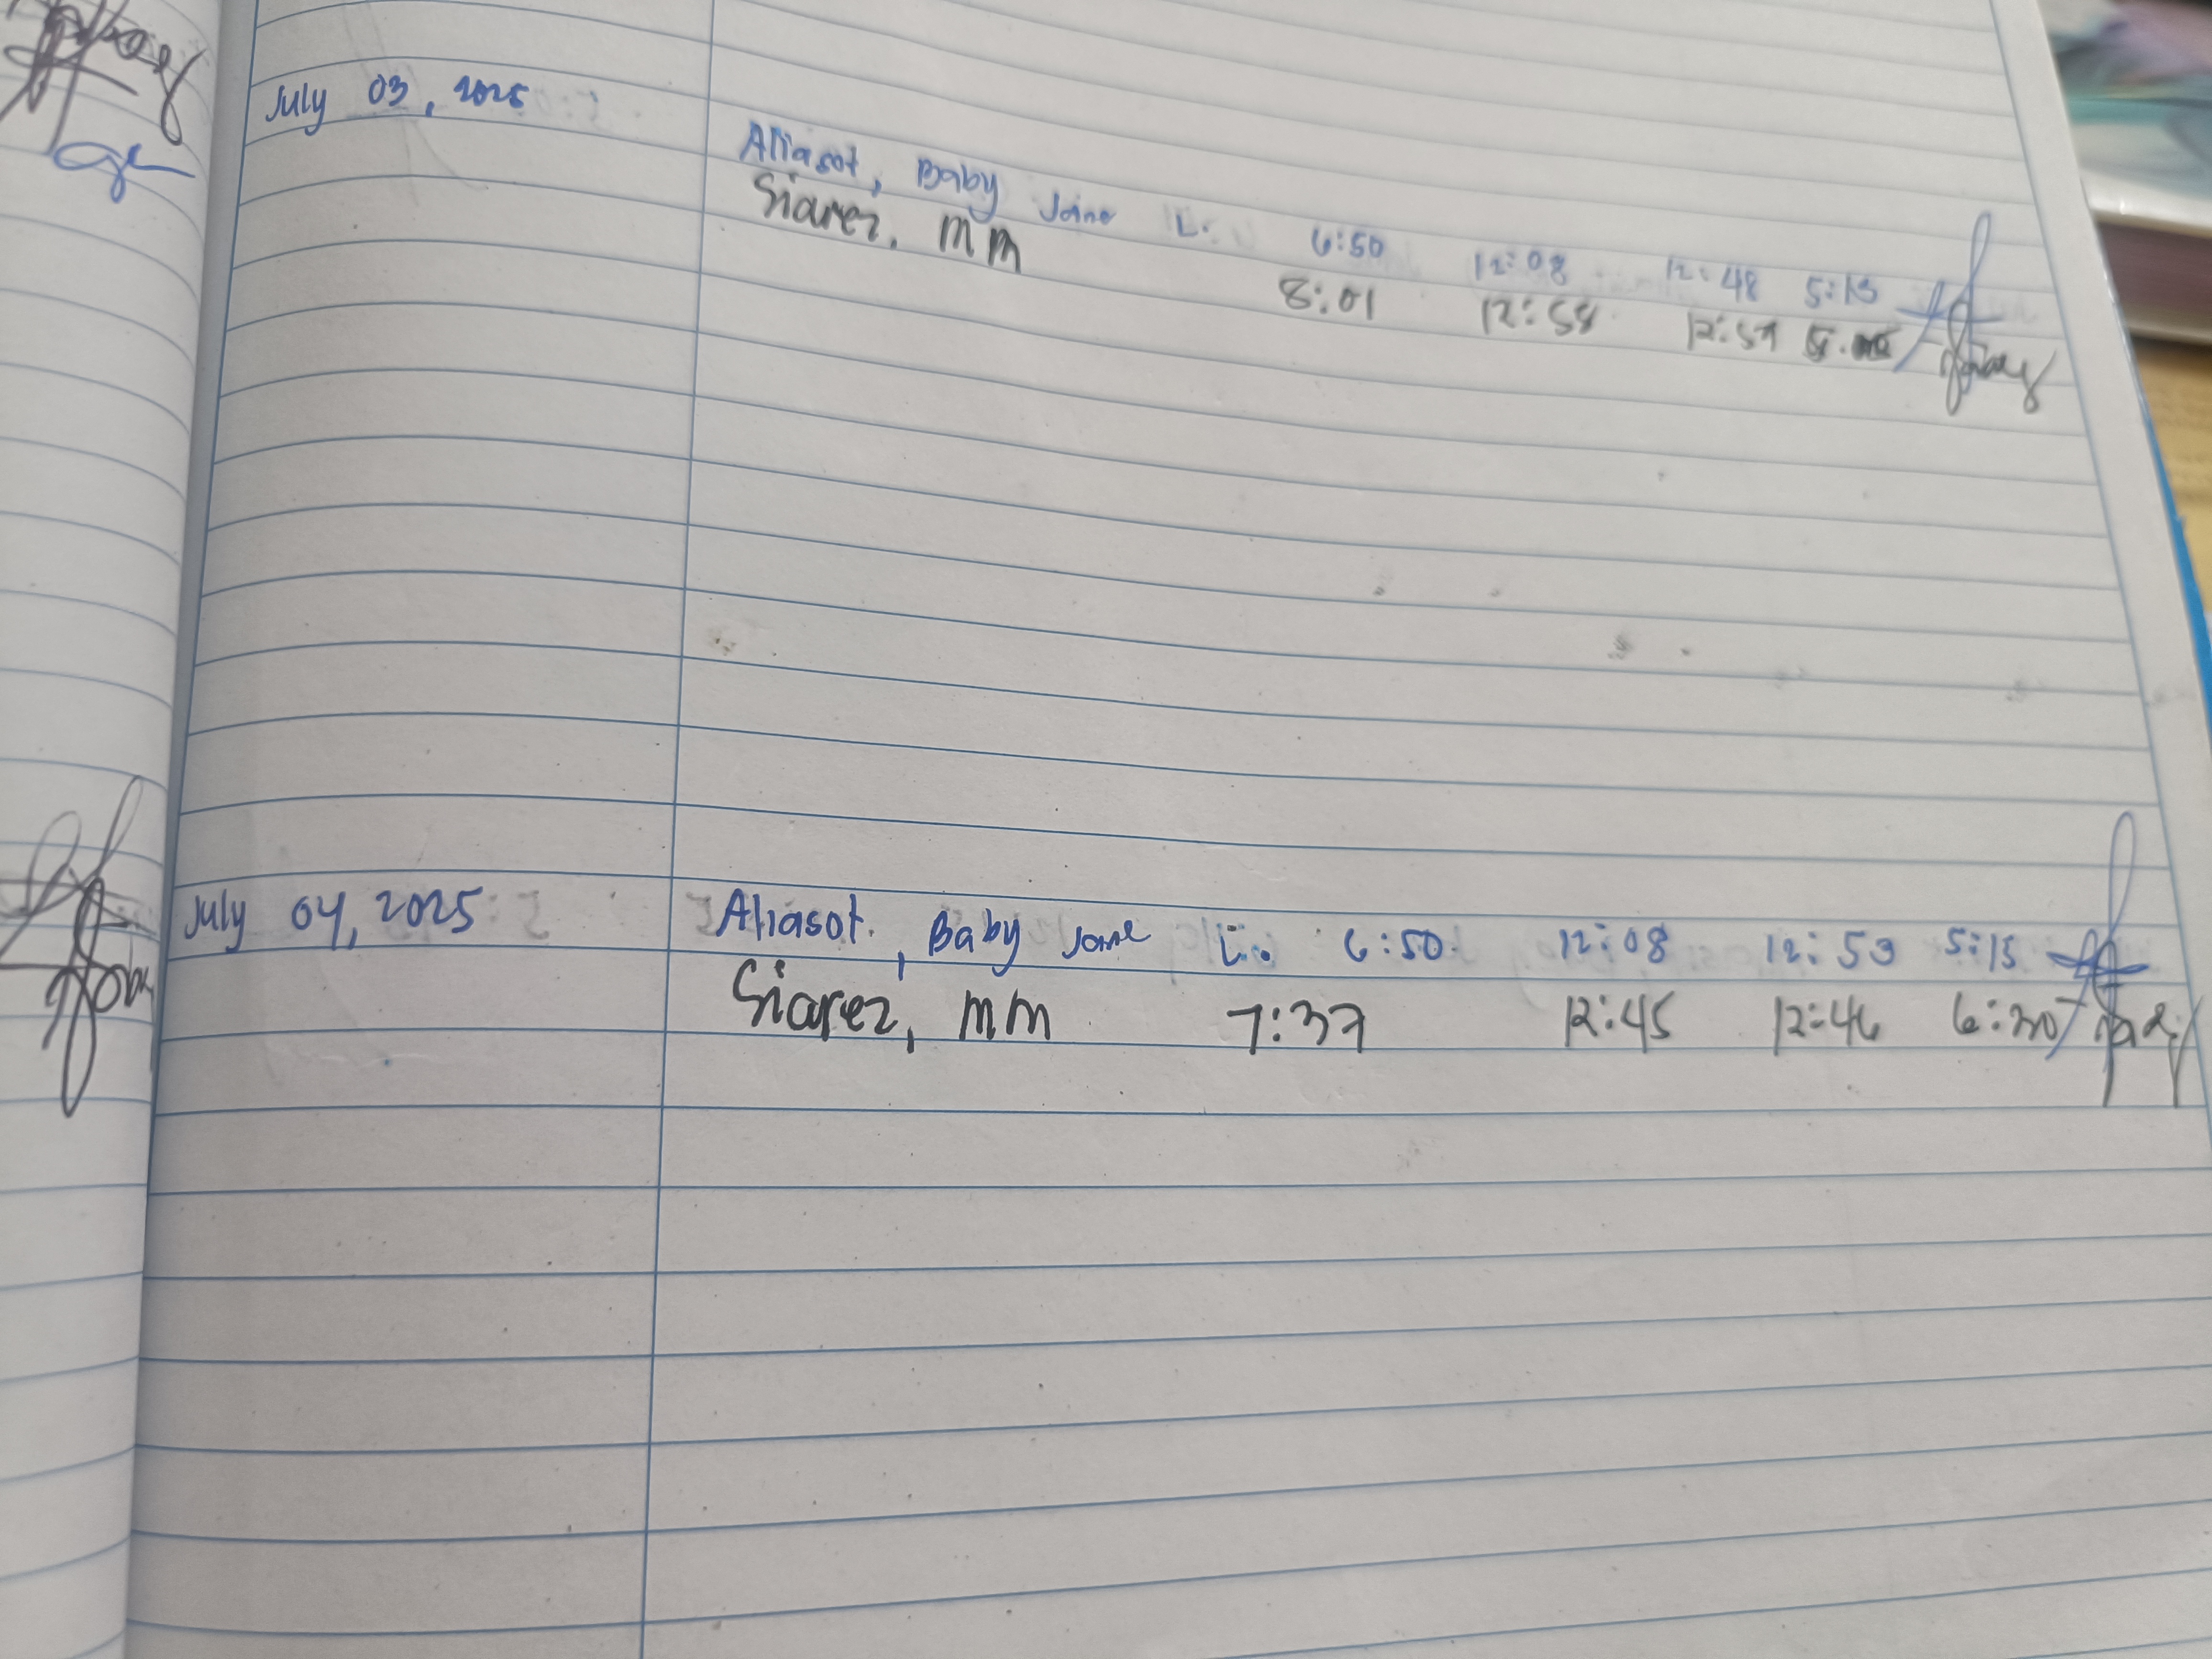 July 03, 2025
Aliasot, Baby Jane L. 6:50 12:08 12:48 5:13
Siarez, MM 8:01 12:58 12:59
July 04, 2025 Aliasot, Baby Jane L. 6:50 12:08 12:53 5:15
Siarez, MM 7:37 12:45 12:46 6:30